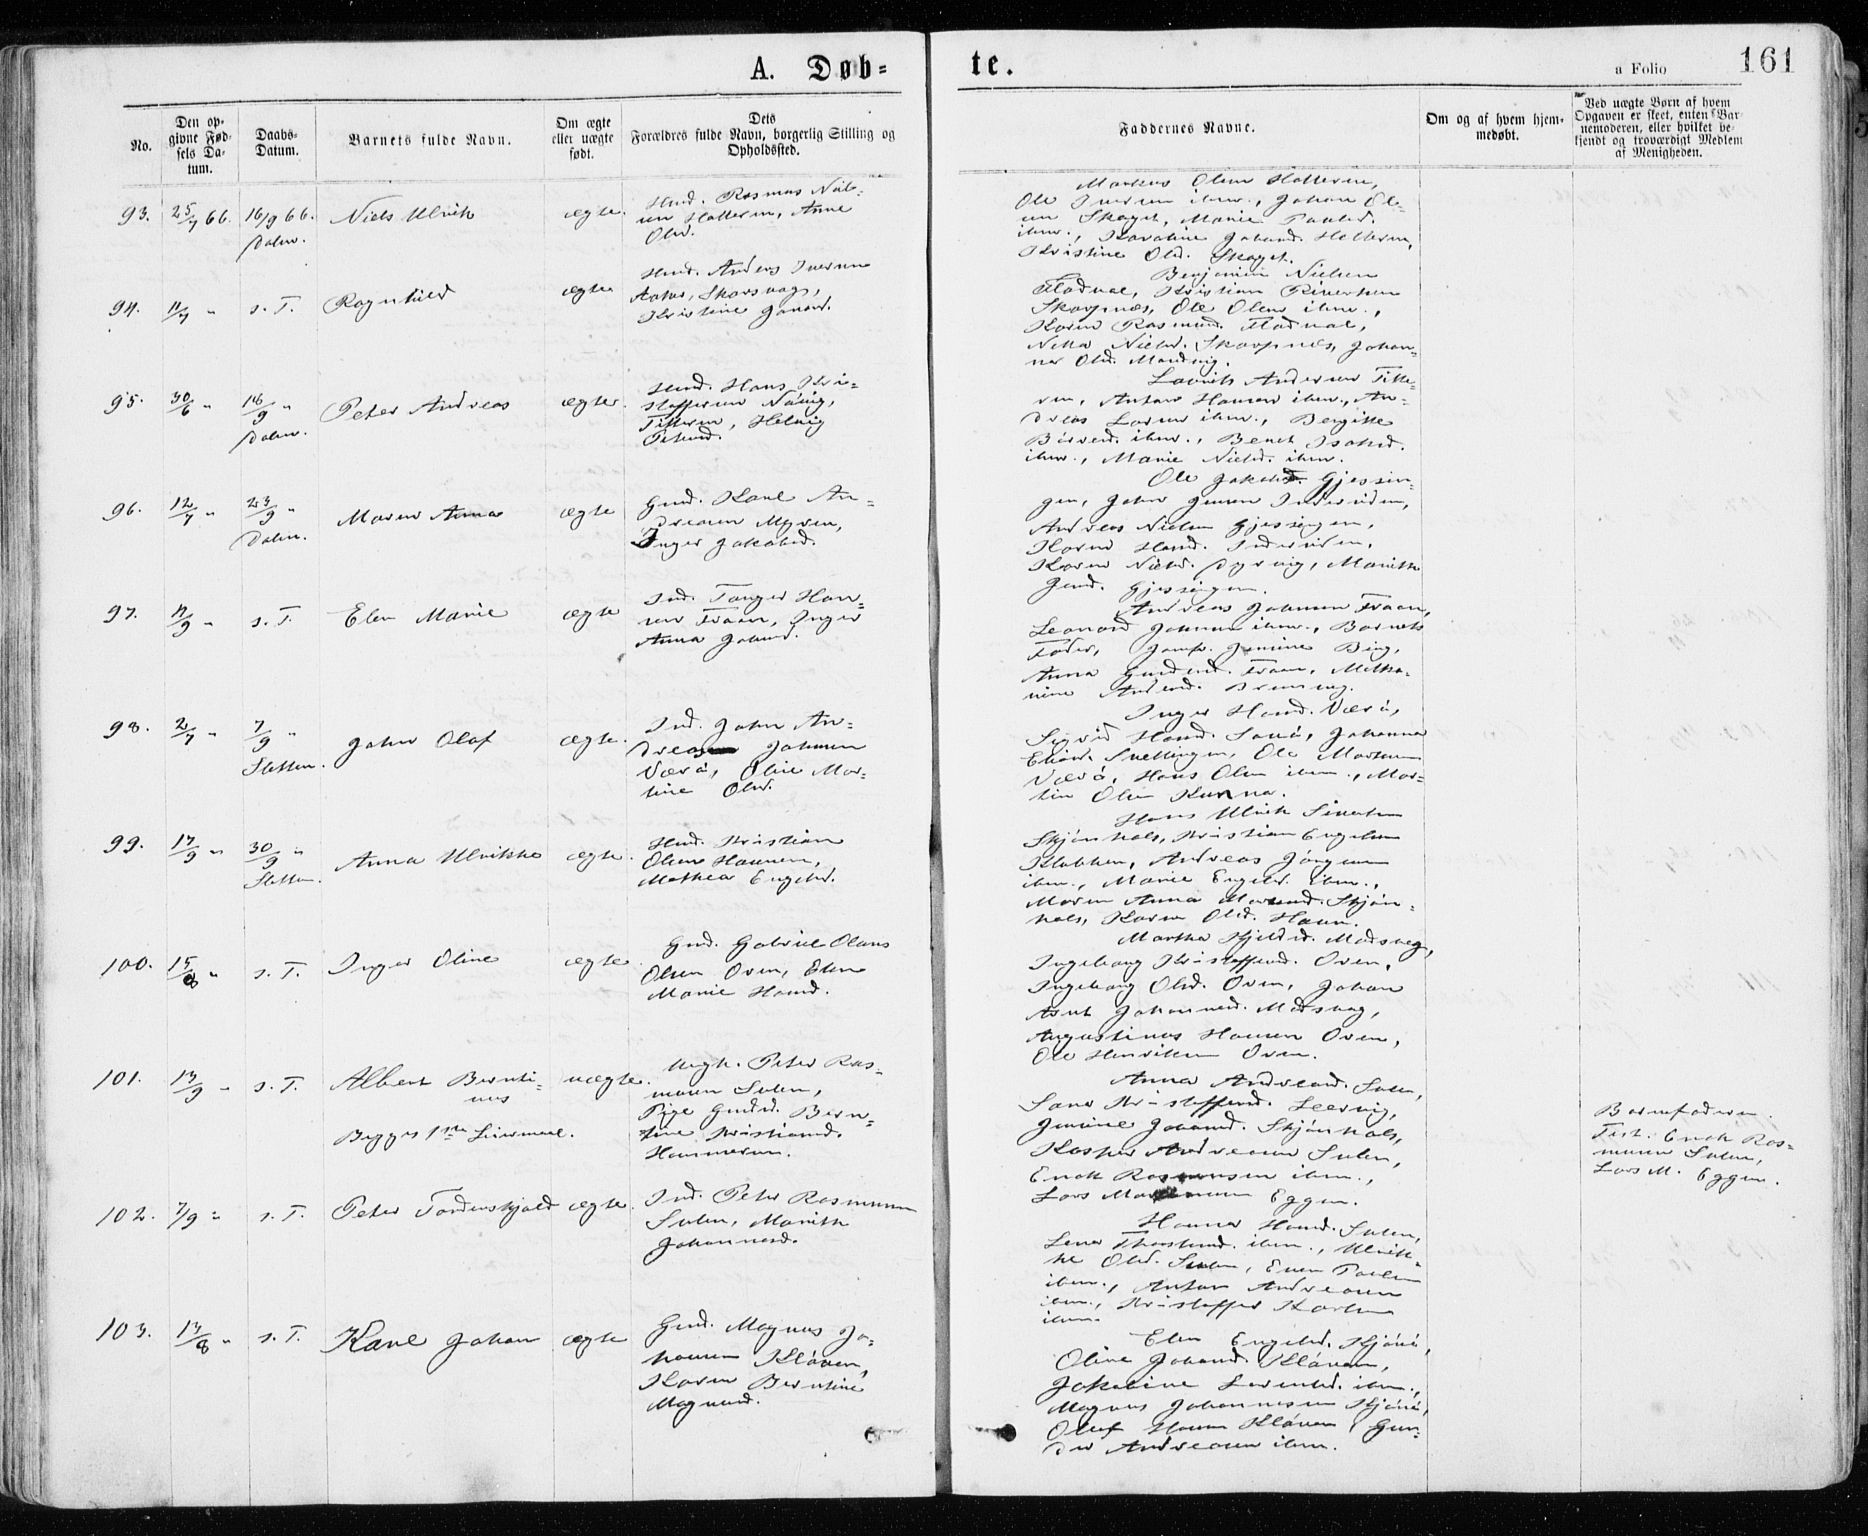 A. Døb-
te.
a Folio 161
No.
Den op-
givne Fød-
sels Da-
tum.
Daabs-
Datum.
Barnets fulde Navn.
Om ægte
eller uægte
født.
Dets
Forældres fulde Navn, borgerlig Stilling og
Opholdssted.
Faddernes Navne.
Om og af hvem hjem-
medøbt.
Ved uægte Børn af hvem
Opgaven er skeet, enten Bar-
nemoderen, eller hvilket be-
kjendt og troværdigt Medlem
af Menigheden.
93. 25/7 66. 16/9 66. Niels Ulrik ægte.
Dolm.
Husm. Rasmus Niel-
sen Hatteren, Anne
Olsd.
Markus Olsen Hatteren,
Ole Iversen ibm., Johan Ol-
sen Skaget, Marie Paulsd.
ibm., Karoline Johansd. Hatteren,
Kristine Olsd. Skaget.
94. 11/7 " s. T. Ragnhild ægte
Husm. Anders Iversen
Kristine Jonasd.
Benjamin Nielsen
Fladval, Kristian
Skarpnæs, Ole Olsen ibm.,
Karen Rasmusd. Fladval,
Nielsd. Skarpnæs, Johan-
na Olsd.
95. 30/6 " 16/9 " Peter Andreas ægte.
Dolm.
Husm. Hans Kri-
stoffersen
Titteren, Helvig
Petersd.
Lavrits Andersen Titte-
ren, Anton Hansen ibm., An-
dreas Larsen ibm., Bergitte
ibm., Isaksd.
ibm., Marie Nielsd. ibm.
96. 12/7 " 23/9 " Maren Anna ægte
Dolm.
Gmd. Karl An-
dreasen Myren,
Inger Jakobsd.
Ole Jakobs. Gjessin-
gen, John Jensen
Andreas Nielsen Gjessingen,
Karen Hansd.
Karen Nielsd. Dyrvig, Marith
Gjessingen.
97. 11/9 " s. T. Elen Marie ægte
Ind. Han-
sen Fraan, Inger
Anna Johnsd.
Andreas Johnsen Fraan,
Leonard Johnsen ibm., Barnets
Fader, Jomfr. Jemine Bing,
Anna Fraan,
98. 2/7 " 7/9 " John Olaf ægte.
Sletten.
Ind. John An-
dreas Johnsen
Værø, Oline Mar-
tine Olsd.
Inger Hansd. Værø,
Sigrid Hansd. Johanna
Ole Mortensen
Værø, Hans Olsen ibm., Mar-
tin Olsen Kunna.
99. 17/9 " 30/9 " Anna Ulrikke ægte.
Sletten.
Husm. Kristian
Olsen Havnen,
Mathea Engelsd.
Hans Ulrik Sivertsen
Skjønhals, Kristian Engelsen
Klakken, Andreas Jørgensen
ibm., Marie Engelsd. ibm.,
Maren Anna Skjøn-
hals, Karen Olsd. Havn.
100. 15/8 " s. T. Inger Oline ægte.
Gmd. Gabriel Olaus
Olsen Oven, Elen
Marie Hansd.
Martha Kjeldsd. Madsvag,
Ingeborg Kristoffersd. Oven,
Ingeborg Olsd. Oven, Johan
Arnt Johannesen Madsvag,
Augustinus Hansen Oven,
Ole Henriksen Oven.
101. 13/9 " s. T. Albert Bernti- uægte.
nus
Begges 1ste Leiermaal.
Ungk. Peter Ras-
musen Sulen,
Pige Bern-
tine Kristiansd.
Hammeren.
Anna Andreasd. Sulen,
Kristoffersd. Leervig,
Jemine Johansd. Skjønhals,
Kasper Andreasen Sulen,
Enok Rasmusen ibm.,
Lars Eggen.
Barnefaderen.
Test. Enok Ras-
musen Sulen,
Lars M. Eggen.
102. 7/9 " s. T. Peter Tordenskjold ægte.
Ind. Peter Rasmusen
Sulen, Marith
Johannesd.
Hanna Hansd. Sulen,
ibm., Ulrik-
ke Olsd. Sulen, Even Paulsen
ibm., Anton Andreasen
ibm., Kristoffer Karlsen
ibm.
103. 13/8 " s. T. Karl Johan ægte
Gmd. Magnus Jo-
hansen Kløven,
Karen Berntine
Magnusd.
Elen Engelsd. Kjønø,
Oline Johansd. Kløven,
Jakobine Lorentsd. ibm.,
Magnus Johannesen Kjønø,
Oluf Hansen Kløven, Gun-
der Andreasen ibm.